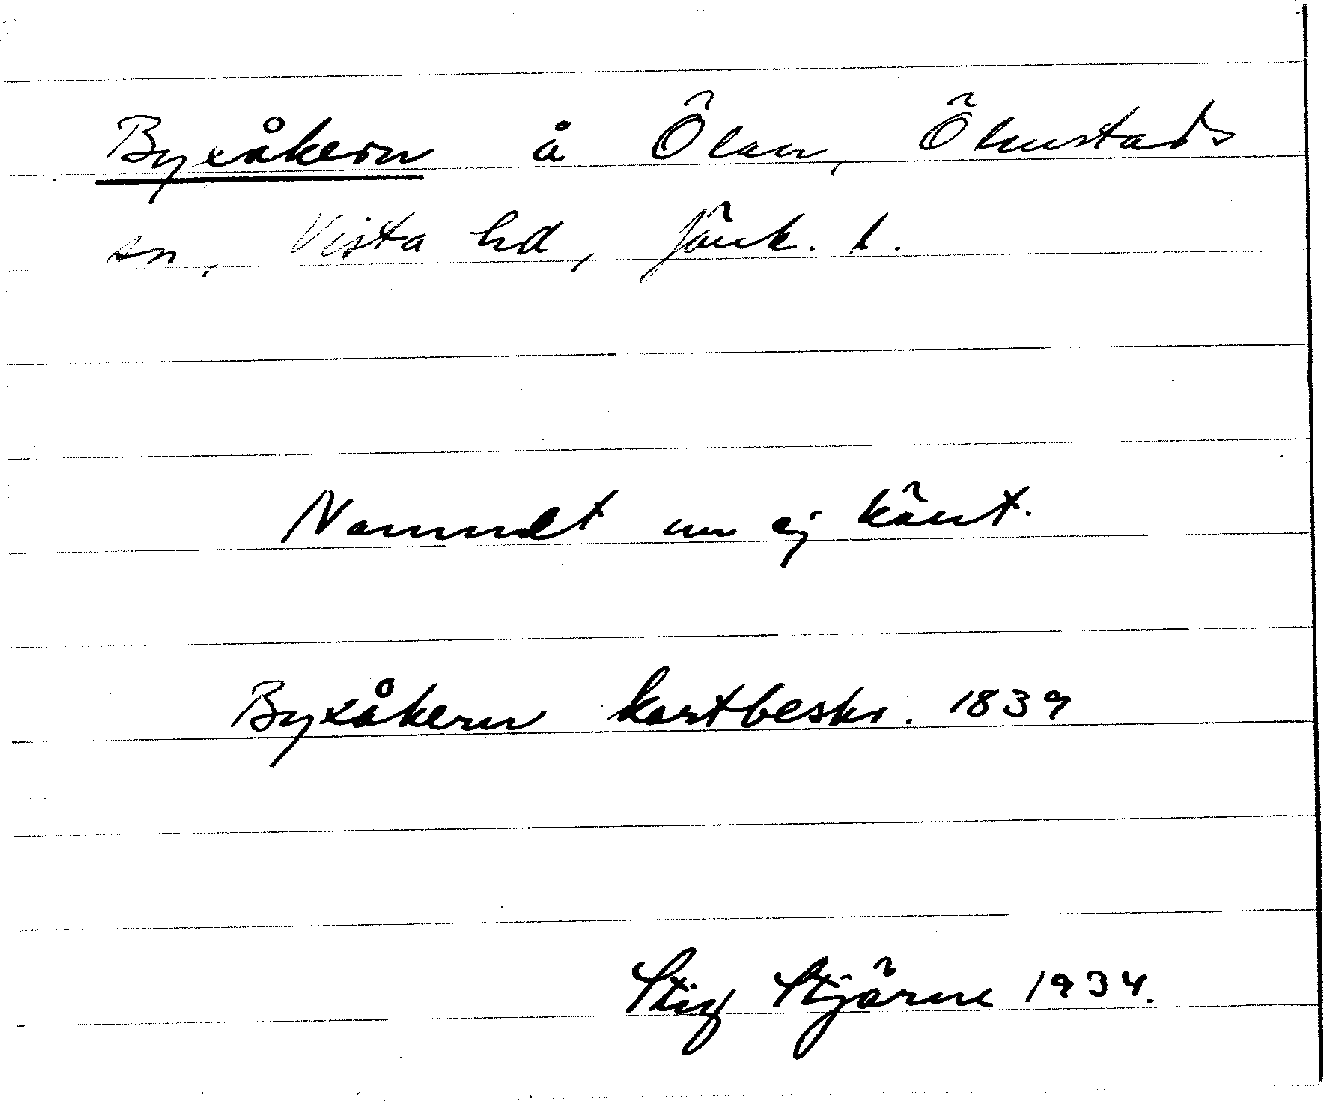 Byxåkern å Ölan, Ölmstads
sn, Vista hd, Jönk. l.
Namnet nu ej känt.
Byxåkern kartbeskr. 1839
Stig Stjärne 1934.